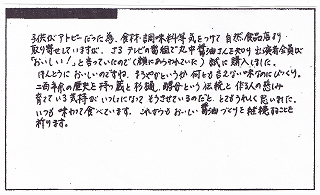 子供がアトピーだった為、食材・調味料等気をつけて自然食品店より
取り寄せていますが、さる テレビの番組で丸中醤油さんをやり出演者全員が
"おいしい!"と言っていたので(顔にあらわれていた)試しに購入しました。
ほんとうにおいしいのですね。まろやかというか何とも言えない味なのにびっくり。
二百年の歴史を持つ蔵と杉樽、酵母という伝統と作る人の慈しみ
育てている気持がいっしょになってそうさせているのだと、とてもうれしく思いました。
いつも味わって食べています。これからもおいしい醤油づくりを継続することを
祈ります。